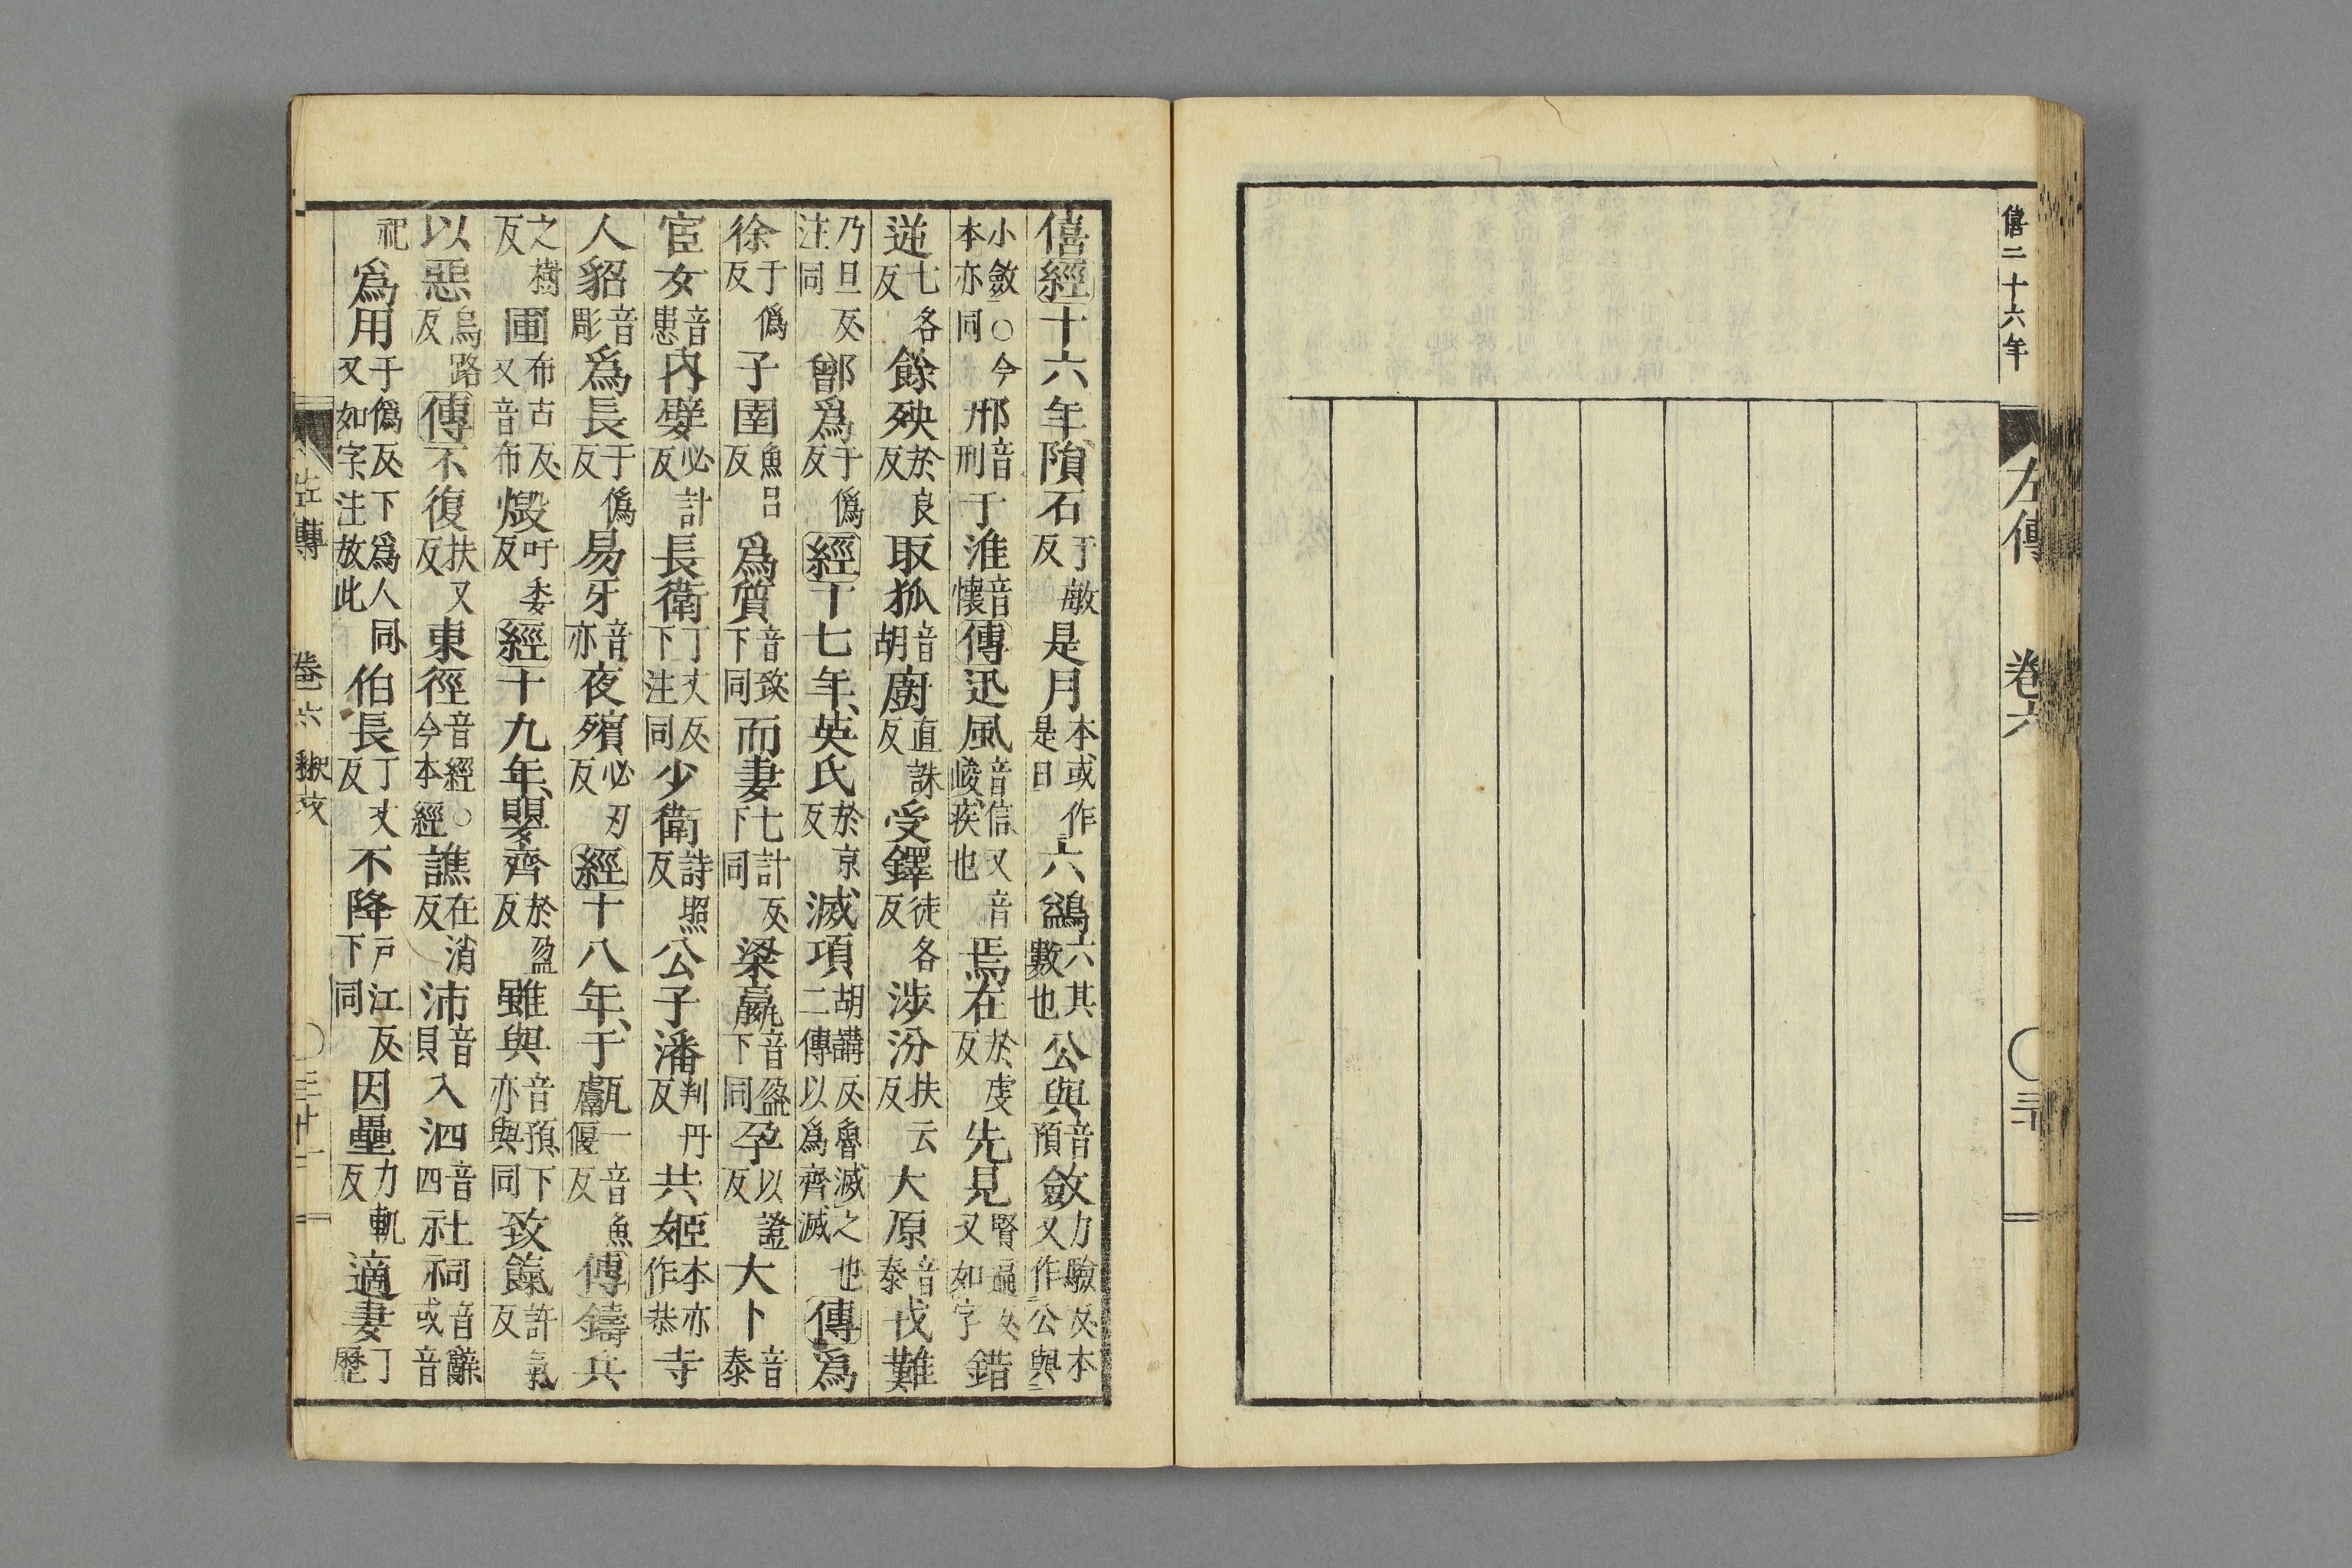 僖二十六年
左傳 卷六 ○三十
僖經十六年、隕石于敏反是月本或作是日六鷁六其數也公與音預斂力驗反本又作公與
小斂○今本亦同邢音刑于淮音懷傳迅風音信、又音峻、疾也焉在於虔反先見賢遍反又如字錯
逆七各反餘殃於良反取狐音胡廚直誅反受鐸徒各反涉汾扶云反大原音泰戎難
乃旦反注同鄫爲于僞反經十七年、英氏於京反滅項胡講反魯滅之也二傳以爲齊滅傳爲
徐于僞反子圉魚呂反爲質音致下同而妻七計反下同梁嬴音盈下同孕以證反大卜音泰
宦女音患內嬖必計反長衛丁丈反下注同少衛詩照反公子潘判丹反共姬本亦作恭寺
人貂音彫爲長于僞反易牙音亦夜殯必刃反經十八年、于甗一音魚偃反傳鑄兵
之樹反圃布古反又音布燬吁委反經十九年、嬰齊於盈反雖與音預下亦與同致餼許氣反
以惡烏路反傳不復扶又反東徑音經○今本經譙在消反沛音貝入泗音四社祠音辭或音
祀爲用于僞反下爲人同又如字注放此伯長丁丈反不降戶江反下同因壘力軌反適妻丁歷
左傳 卷六 釋文 ○三十一